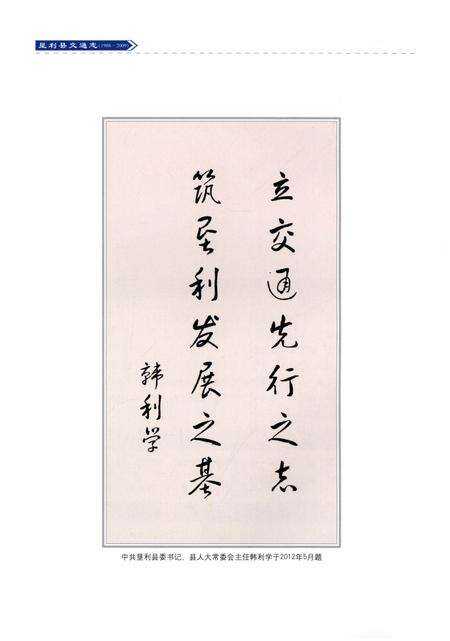 垦利县交通志(1988－2009)
立交通先行之志
筑垦利发展之基
韩利学
中共垦利县委书记、县人大常委会主任韩利学于2012年5月题